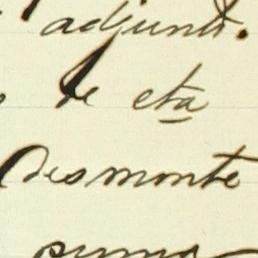 adjunt.
de eta
Desmonte